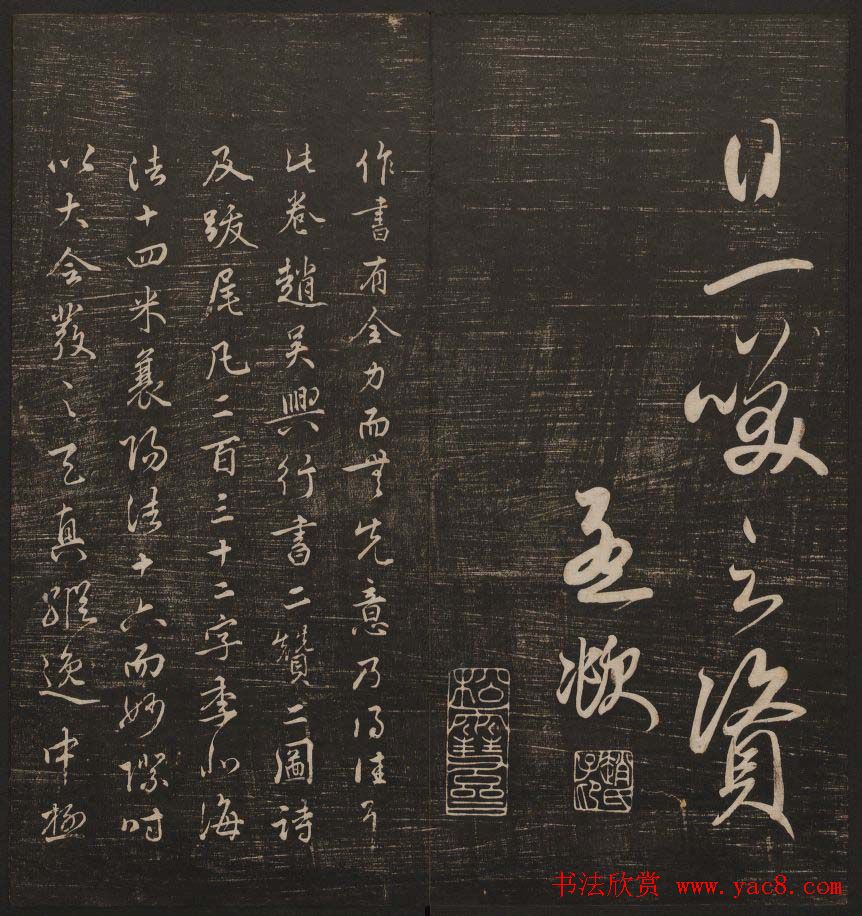 日一笑之资
孟頫
松雪斋
赵氏子昂
作書有全力而無先意乃得佳耳
此卷趙吴興行書二贊二圖詩
及跋尾凡二百三十二字李北海
法十四米襄陽法十六而妙際時
以大令發之天真縱逸中極
书法欣赏 www.yac8.com